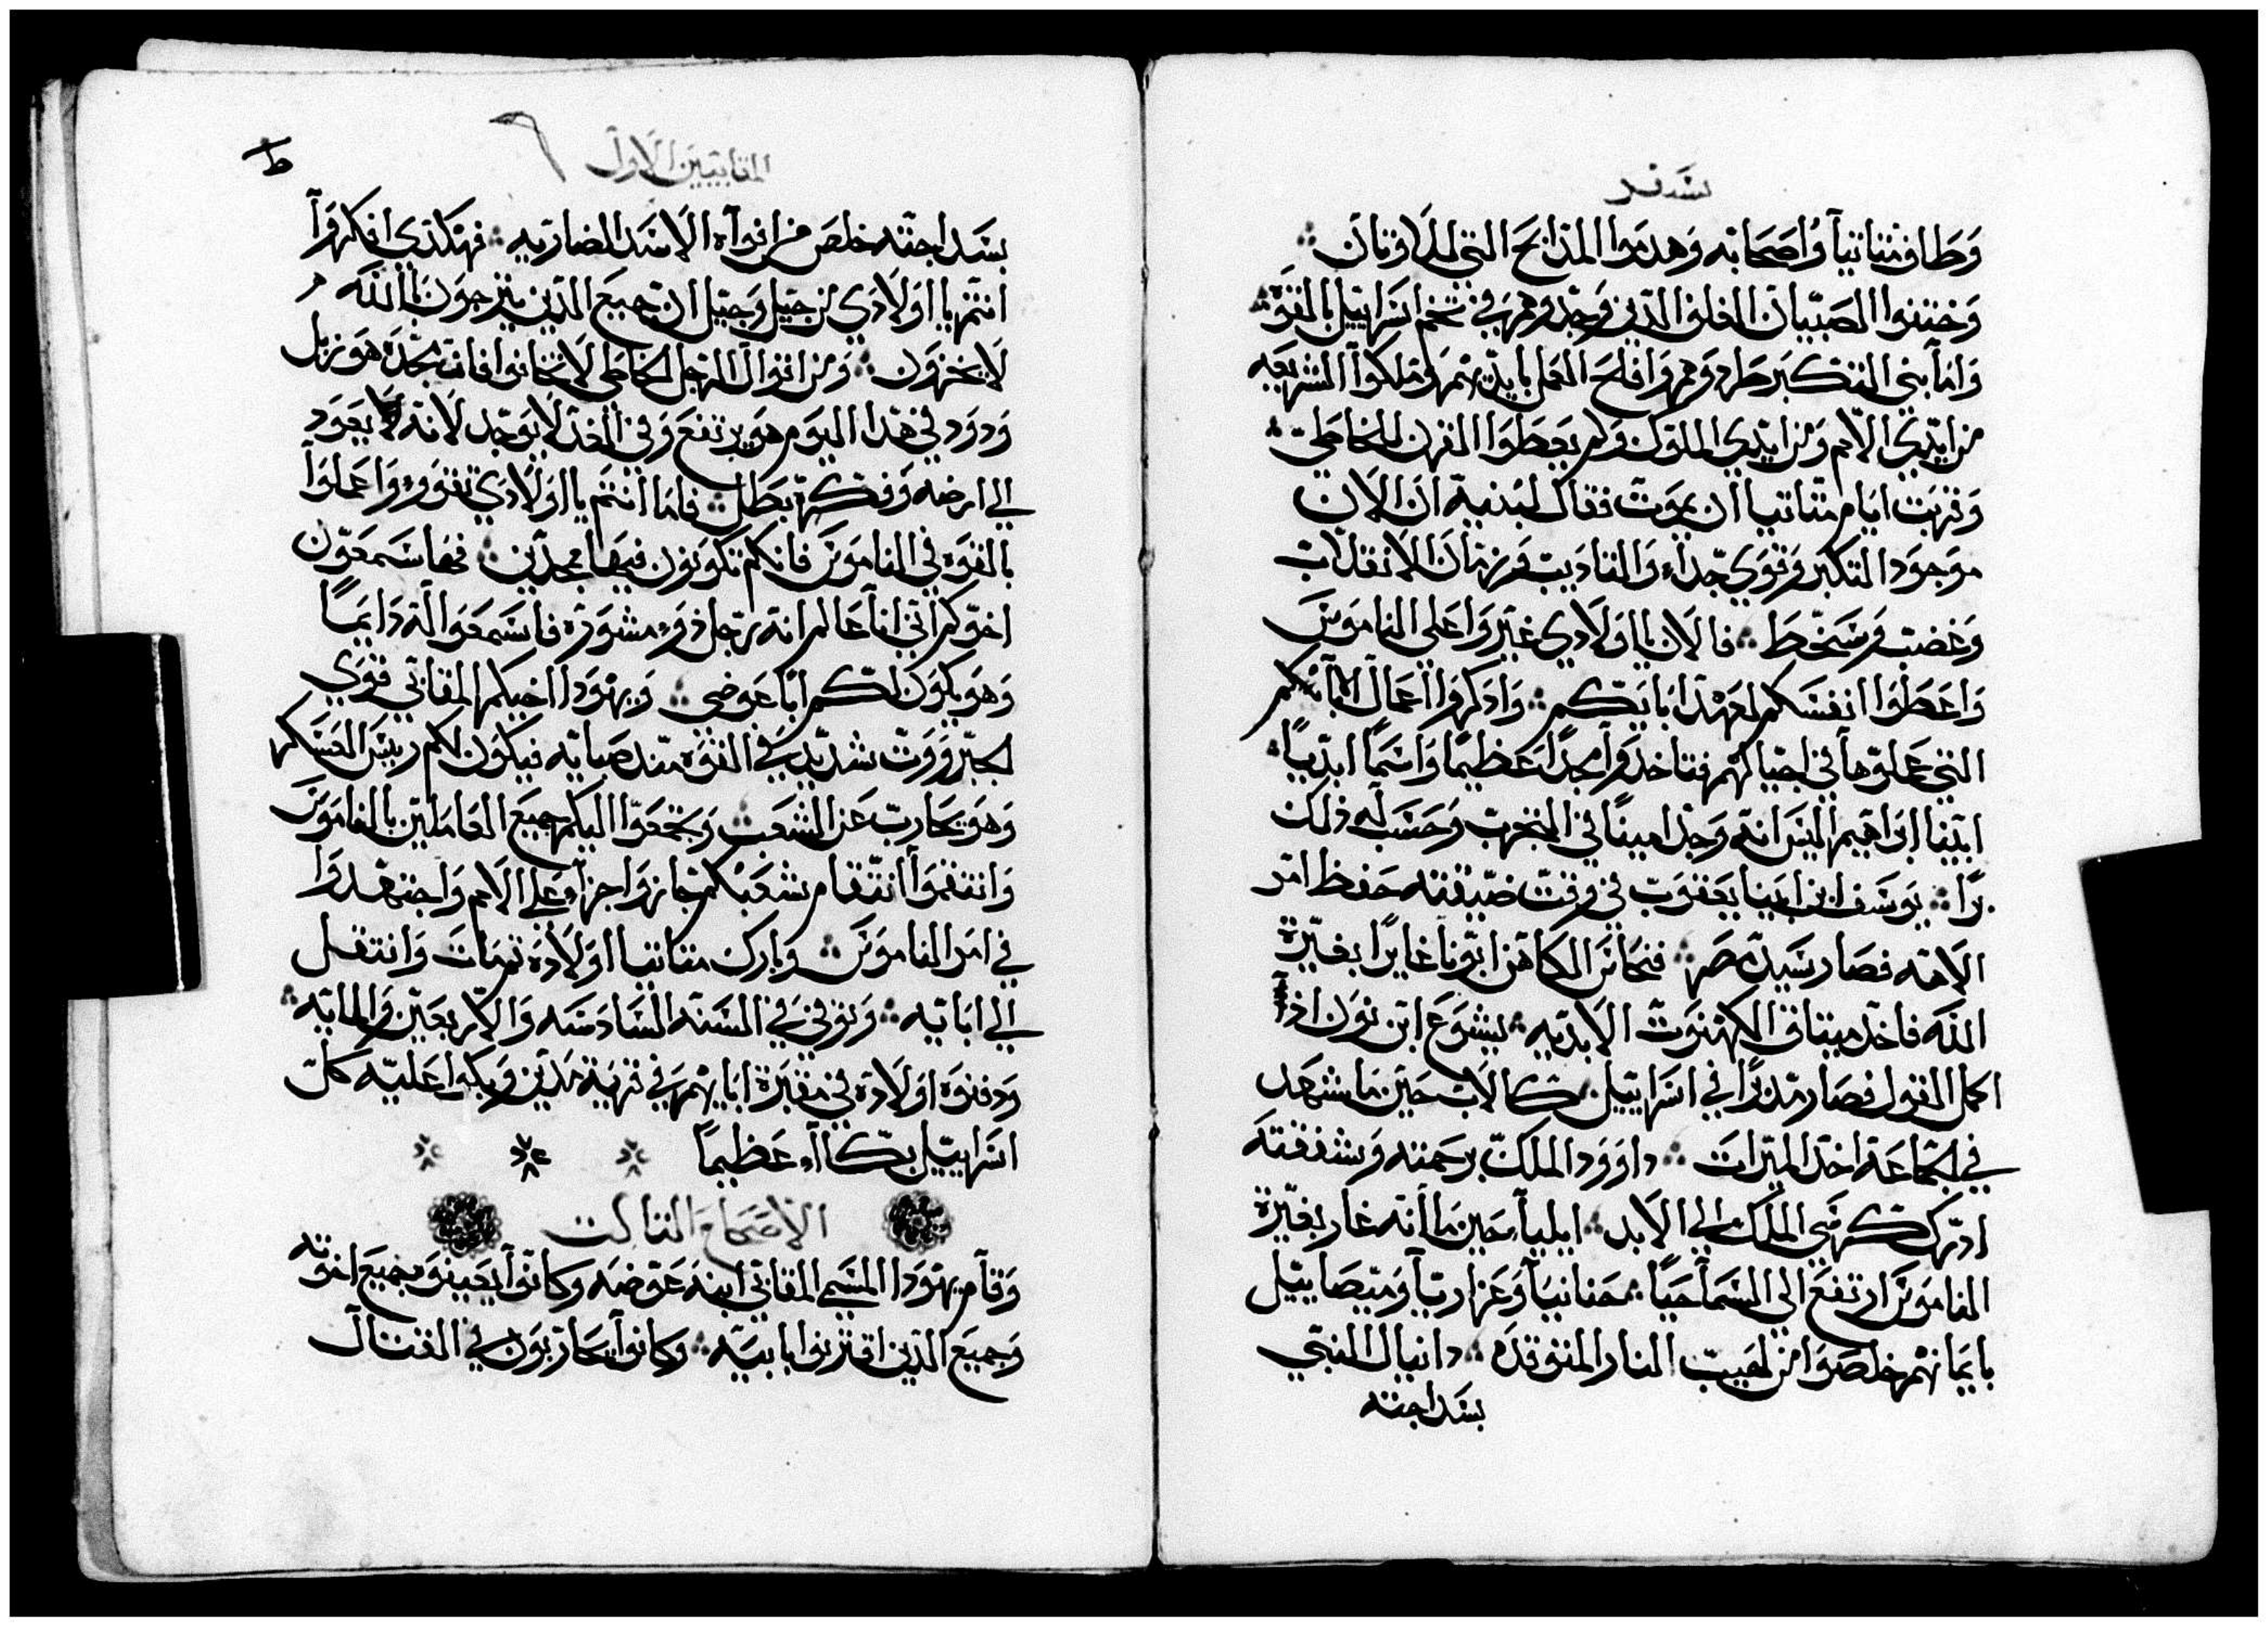 سفر
وطاف متاتيا واصحابه وهدموا المذابح التي للاوتان
وختنوا الصبيان الغلف الدين وجدوهم في تخم اسراييل بالقوه
واما بني التكبر طردوهم وافلح العمل بايديهم وملكوا الشريعه
من ايدي الامم ومن ايدي الملوك ولم يعطوا القرن للخاطي
وقربت ايام متاتيا ان يموت فقال لبنيه ان الان
موجود التكبر وقوي جدا والتاديب وزمان الانقلاب
وغضب وسخط فالان يا اولادي غيروا على الناموس
واعطوا انفسكم لعهد ابايكم وادكروا اعمال ابآكم
التي عملوها في اجيالهم فتاخدوا مجدا عظيما واسما ابديا
ابينا ابراهيم اليس انه وجد امينا في التجرب وحسب له ذلك
برا يوسف ابن ابينا يعقوب في وقت ضيقته حفظ امر
الاهه فصار سيد مصر فنحاس الكاهن ابونا غايرا بغيرة
الله فاخد ميتاق الكهنوت الابديه يشوع ابن نون اذ
اكمل القول فصار مدبرا في اسراييل كالاب حين ما شهد
في الجماعة اخد الميرات داوود الملك برحمته وشفقته
ادرك كرسي الملك الى الابد ايليا حين ما انه غار بغيرة
الناموس ارتفع الى السما حيا حنانيا وعزاريا وميصاييل
بايمانهم خلصوا من لهيب النار المتوقده دانيال النبي
بسداجته
المقابيين الاول
ط
بسداجته خلص من افواه الاسد الضاريه فهكدي افكروا
انتم يا اولادي من جيل وجيل ان جميع الدين يترجون بالله
لا يخزون ومن اقوال الرجل الخاطي لا تخافوا فان مجده هو زبل
ودود في هدا اليوم هو يرتفع وفي الغد لا يوجد لانه لا يعود
الي ارضه وفكره بطل فاما انتم يا اولادي تقووا واعملوا
بالقوه في الناموس فانكم تكونون فيها ممجدين فها سمعون
اخوكم اني انا عالم انه رجل دو مشورة فاسمعوا له دايما
وهو يكون لكم ابا عوضي ويهودا اخيكم المقابي قوي
الجبروت شديد في القوه مند صبايه فيكون لكم ريس العسكر
وهو يحارب عن الشعب وتجمعوا اليكم جميع العاملين بالناموس
وانتقموا انتقام شعبكم جازوا جزاء علي الامم واجتهدوا
في امر الناموس وبارك متاتيا اولاده تم مات وانتقل
الي ابايه وتوفي في السنه السادسه والاربعين والمايه
ودفنوه اولاده في مقبرة ابايهم في قرية مدين وبكوا عليه كل
اسراييل بكاء عظيما
الاصحاح التالت
وقام يهودا المسمي المقابي ابنه عوضه وكانوا يعينوه جميع اخوته
وجميع الدين اقترنوا بابيه وكانوا يحاربون في القتال